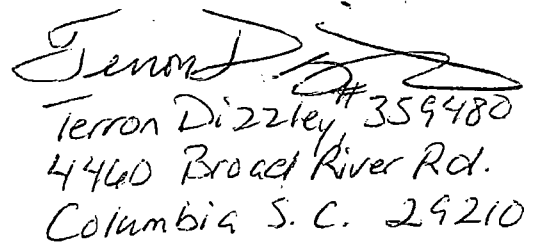 Terron D
Terron Dizzley #359480
4460 Broad River Rd.
Columbia S.C. 29210